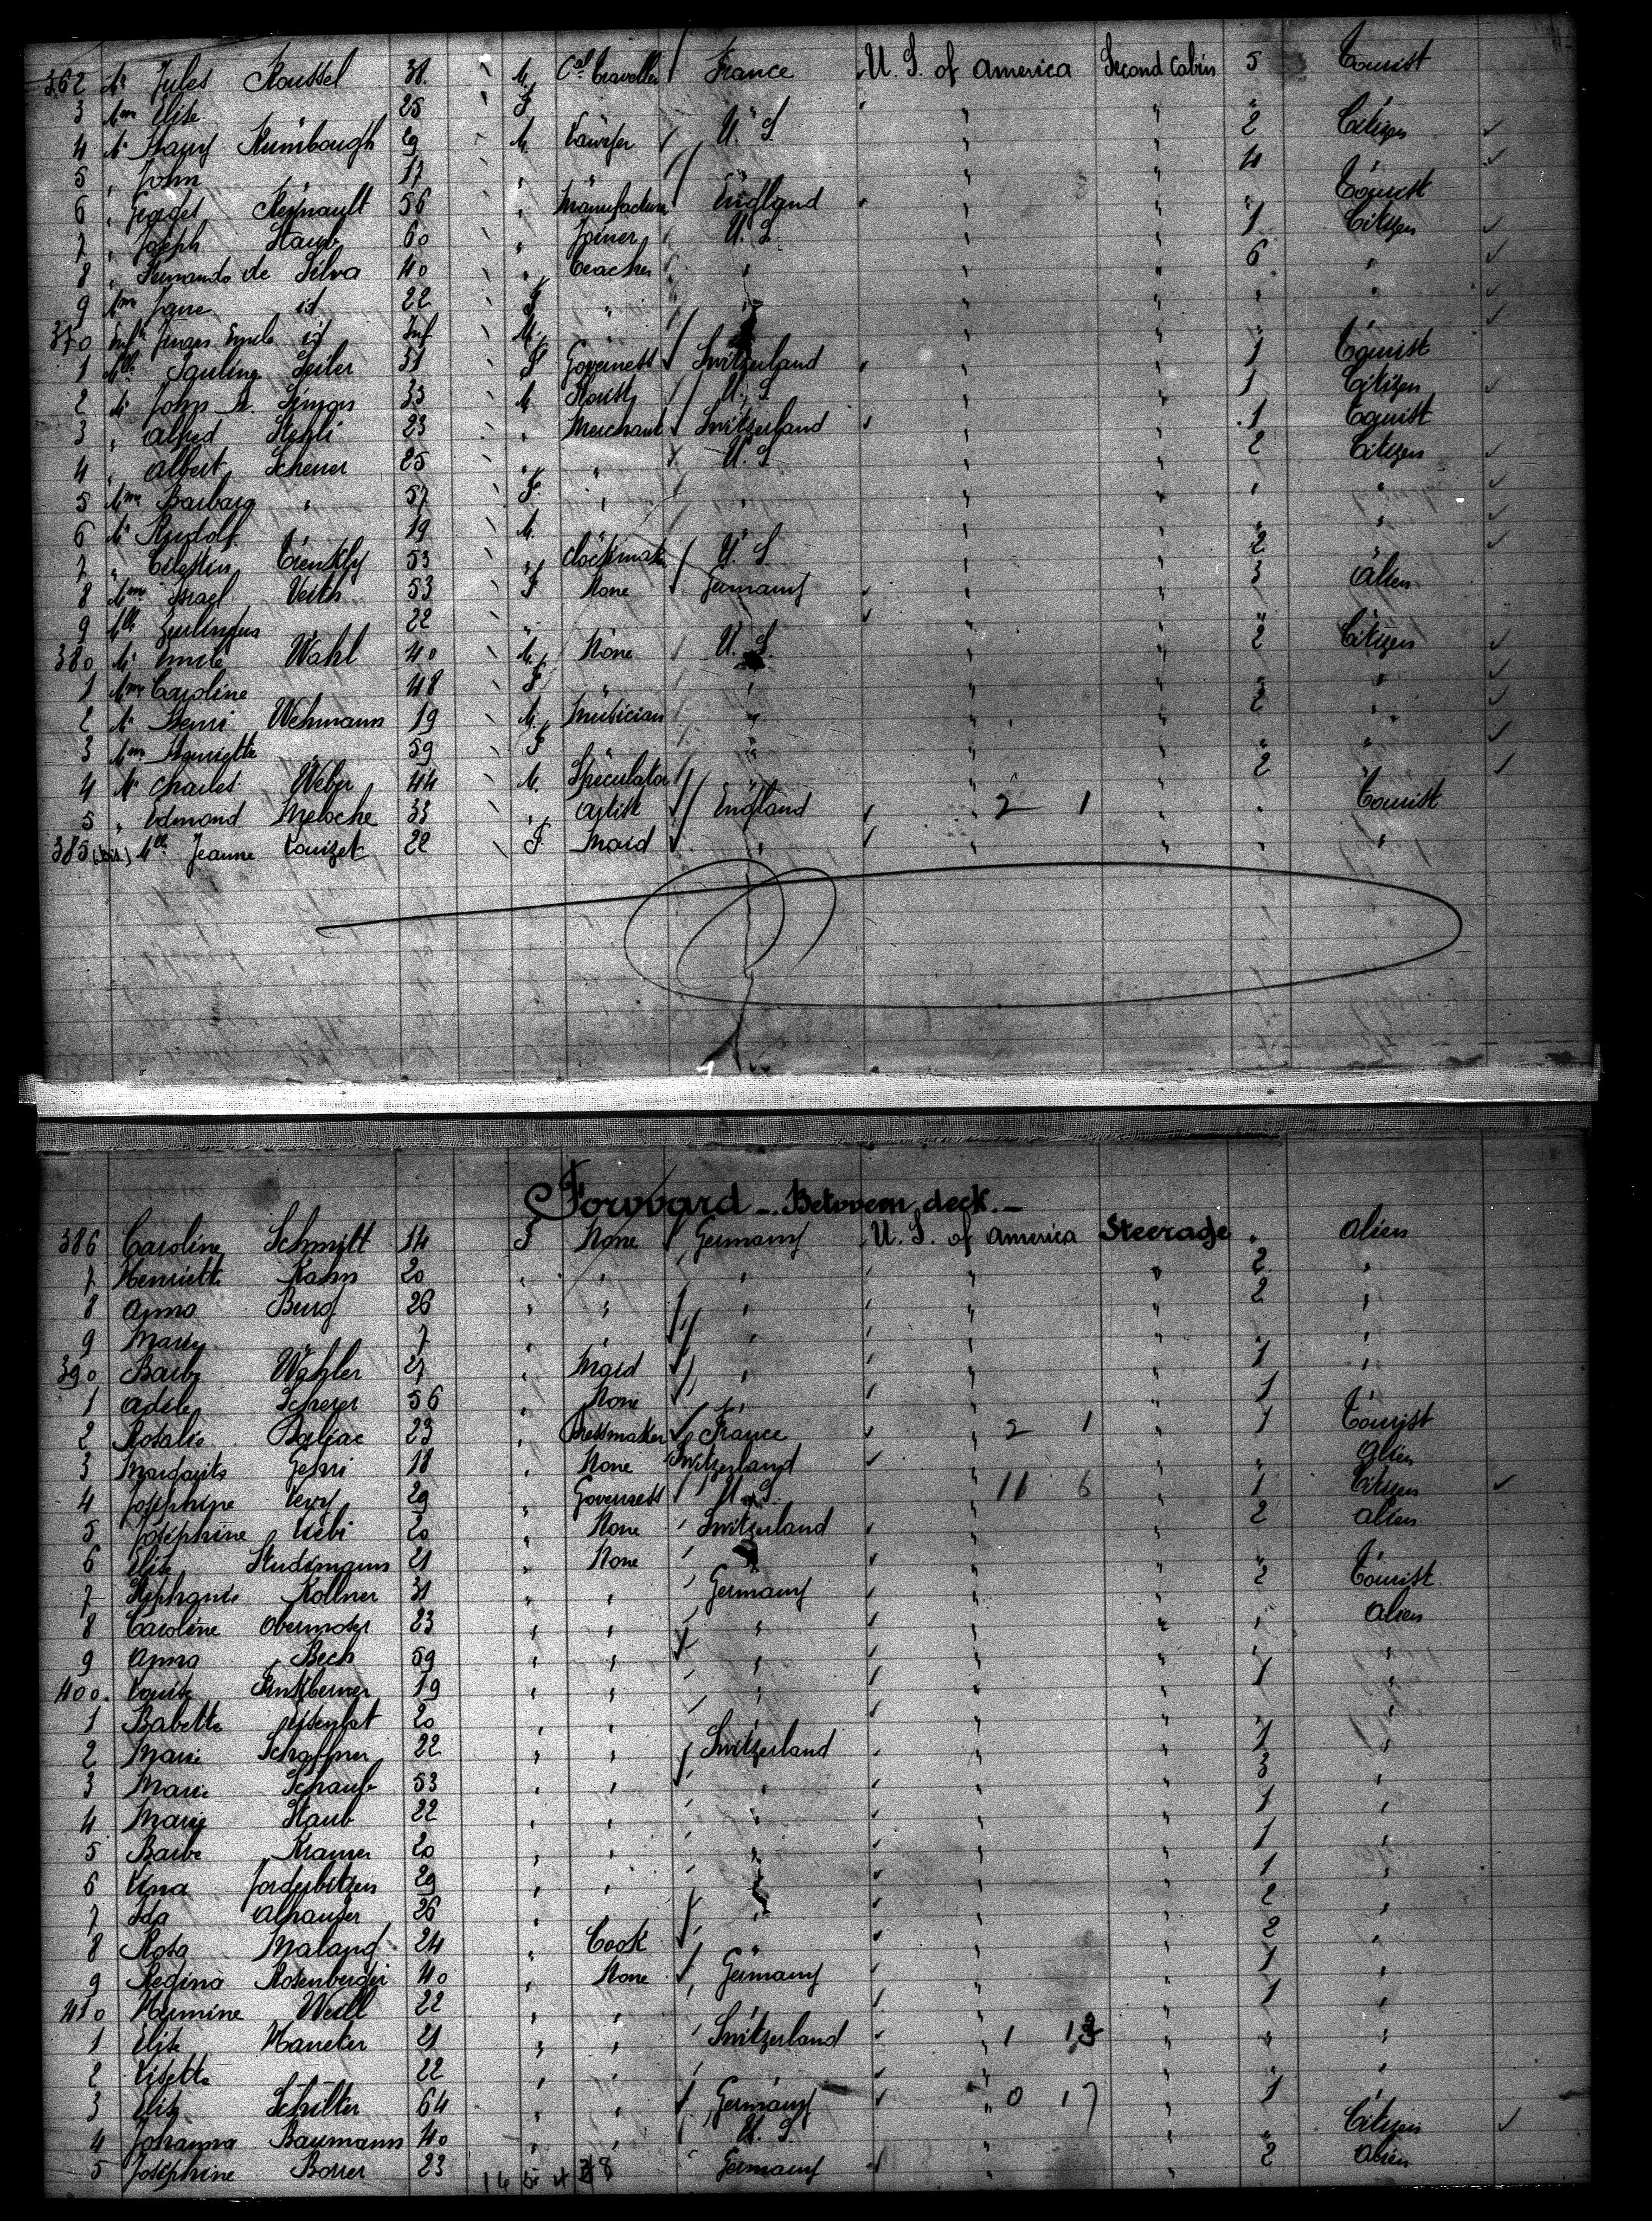 362 Mr Jules Roussel 38 M. Cal traveller France U. S. of America Second Cabin 5 Tourist
3 Mme Elise " 25 F " " " " "
4 Mr Harry Rumbough 29 M. Lawyer U. S " " 2 Citizen
5 " John " 17 " " " " " 4
6 " Georges Reynault 56 " Manufacturer England " " " Tourist
7 " Joseph Staub 60 " Joiner U. S. " " 1 Citizen
8 " Fernando de Silva 40 " Teacher " " " 6 "
9 Mme Jane id 22 F " " " " " "
370 Inft Juan Emile id Inf. M. " " " "
1 Mlle Pauline Seiler 31 F Governess Switzerland " " 1 Tourist
2 Mr John A. Simon 33 M Florist U. S. " " 1 Citizen
3 " Alfred Stehli 23 " Merchant Switzerland " " 1 Tourist
4 " Albert Scheuer 25 " " U. S " " 2 Citizen
5 Mme Barbara " 57 F. " " " " " "
6 Mr Rudolf " 19 M. " " " " "
7 " Celestin 53 " Clockmaker U. S " " 2 "
8 Mme Israel Veith 53 F None Germany " " 3 Alien
9 Mlle " 22 " " " " "
380 Mr Emile Wahl 40 M. None U. S. " " 2 Citizen
1 Mme Caroline " 48 F " " " " " "
2 Mr Henri Wehmann 19 M. Musician " " " 2 "
3 Mme Henriette " 59 F " " " " "
4 Mr Charles Weber 44 M. Speculator " " " 2 "
5 " Edmond Meloche 33 " Artist England " 2 1 " " Tourist
385 (bis) Mlle Jeanne Louizet 22 F. Maid " " " " "
Forward - Between deck. -
386 Caroline Schmitt 14 F None Germany U. S. of America Steerage " Alien
7 Henriette Kahn 20 " " " " " 2 "
8 Anna Burg 26 " " " " " 2 "
9 Marie " 7 " " " " " "
390 Barbe Wahler 27 " Maid " " " 1 "
1 Adele Scherer 56 " None " " " 1
2 Rosalie 23 " Dressmaker France 2 1 " 1 Tourist
3 Margarita Jenni 18 " None Switzerland " " " Alien
4 Josephine Levy 29 " Governess U. S. 11 6 " 1 Citizen
5 Josephine Liebi 20 " None Switzerland " " 2 Alien
6 Elise Studimann 21 " None " " " "
7 Stephanie Kollner 31 " " Germany " " 2 Tourist
8 Caroline Obermoser 23 " " " " " " Alien
9 Anna Bech 59 " " " " " " "
400. Louise 19 " " " " " 1 "
1 Babette 20 " " " " " " "
2 Marie Schaffner 22 " " Switzerland " " 1 "
3 Marie Schaub 53 " " " " " 3 "
4 Marie Staub 22 " " " " " 1 "
5 Barbe Kramer 20 " " " " " 1
6 Lina 29 " " " " " 1 "
7 Ida Alhauser 26 " " " " 2 "
8 Rosa 24 " Cook " " " 2 "
9 Regina Rosenberger 40 " None Germany " " 1 "
410 Hermine Weill 22 " " " " " 1 "
1 Elise Haneter 21 " " Switzerland 1 13 " " "
2 Lisette " 22 " " " " " " "
3 Elis. Schilter 64 " " Germany " 0 17 " 1
4 Johanna Baumann 40 " " U. S. " " " Citizen
5 Josephine Borrer 23 Germany " " 2 Alien